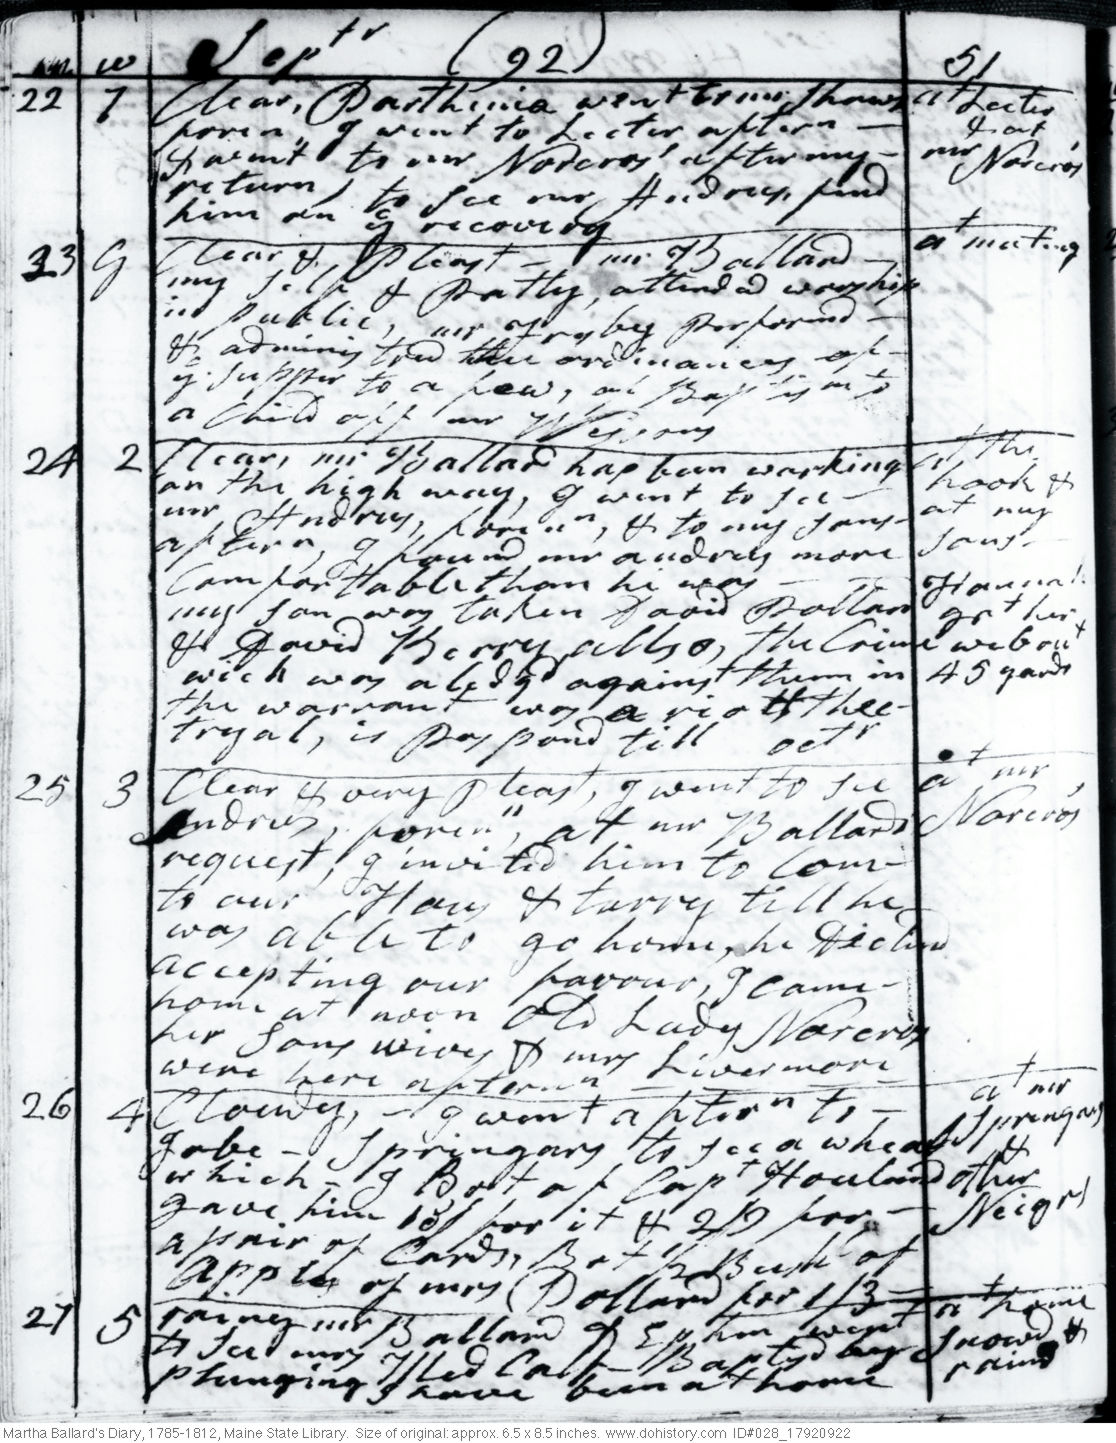 m w Septr (92) 51
22 7 Clear, Parthenia went to mr Shaws at Lectur
foren, I went to Lectur aftern & at
& went to mr Norcros' after my mr Norcros
return, to see mr Andrus, find
him on ye recovery
23 G Clear & Pleast mr Ballard at meeting
my self & Dolly, attended worship
in Public, mr Perform'd
& administred the ordinances of
ye Supper to a few, al Baptism to
a Child off mr
24 2 Clear, mr Ballard has been working at the
on the high way, I went to see hook &
mr Andrus, foren, & to my sons at my
aftern, I found mr andrus more sons
Comfortable than he was Hannah
my son was taken David Pollard got her
& David Berry allso, the Crime web out
wich was aledgd against them in 45 yards
the warrant was a riott thee
tryal, is Pospond till octr
25 3 Clear & very Pleast, I went to see at mr
Andrus, foren, at mr Ballards Norcros
request, I invited him to Come
to our Hous & tarry till he
was able to go home, he declind
accepting our favour, I came
home at noon Old Lady Norcros
her Sons wives & mrs Livermore
were here aftern
26 4 Cloudy, I went aftern to at mr
Jobe Springars to see a wheal Springars
which I Bot of Capt Houland & other
gave him 18/ for it & 2/9 for Neighrs
a pair of Cards, Bot ½ Bush of
Apples of mrs Pollard for 1/3
27 5 rainey mr Ballard & Ephm went at home
to see mrs Baptsd by snowd &
plunging I have been at home raind
Martha Ballard's Diary, 1785-1812, Maine State Library. Size of original: approx. 6.5 x 8.5 inches. www.dohistory.com ID#028_17920922